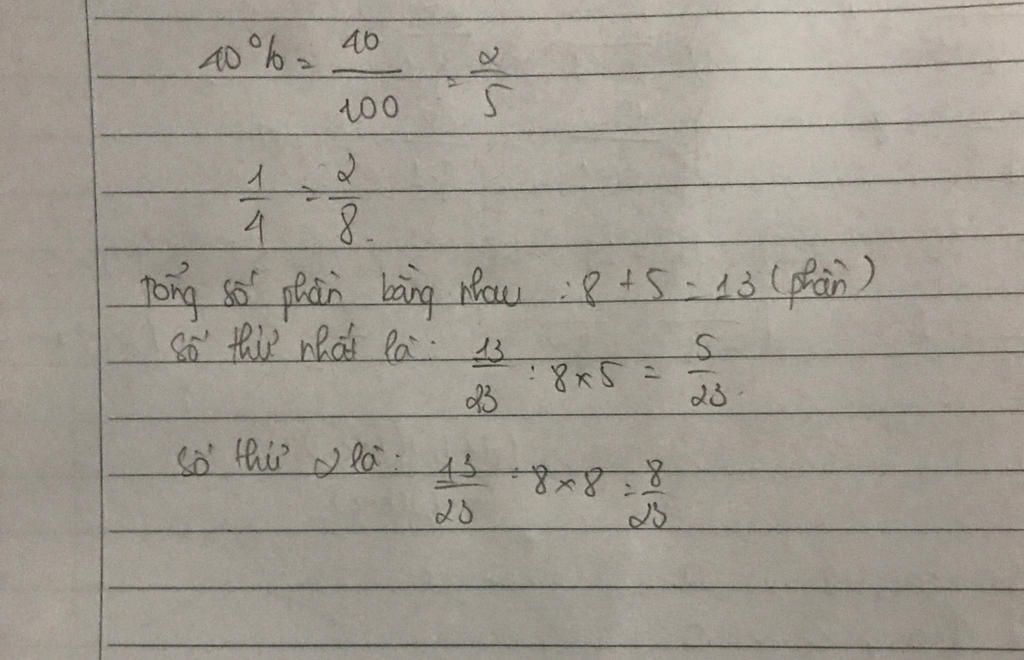 40% = 40/100 = 2/5
1/4 = 2/8.
Tổng số phần bằng nhau : 8 + 5 = 13 (phần)
Số thứ nhất là : 13/23 : 8 × 5 = 5/23.
Số thứ 2 là : 13/23 : 8 × 8 = 8/23